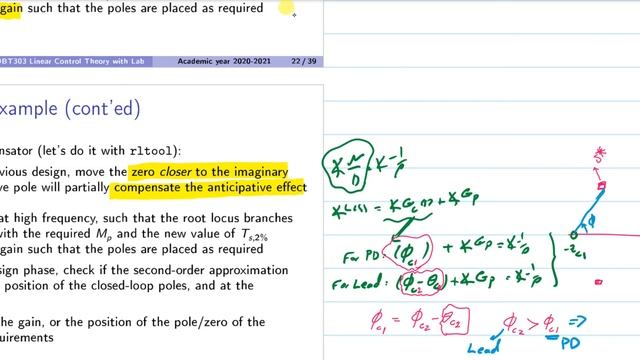 gain such that the poles are placed as required
OBT303 Linear Control Theory with Lab Academic year 2020-2021 22 / 39
xample (cont'ed)
nsator (let's do it with rltool):
vious design, move the zero closer to the imaginary
ve pole will partially compensate the anticipative effect
at high frequency, such that the root locus branches
with the required Mp and the new value of Ts,2%
gain such that the poles are placed as required
sign phase, check if the second-order approximation
position of the closed-loop poles, and at the
the gain, or the position of the pole/zero of the
uirements
∡ N/D = ∡ -1/ρ
∡ L(s) = ∡ Gc(s) + ∡ Gp
For PD: (φc1) + ∡ Gp = ∡ -1/ρ
For Lead: (φc2 - θc2) + ∡ Gp = ∡ -1/ρ
φc1 = φc2 - θc2
φc2 > φc1 =>
Lead PD
s*
φ
-zc1